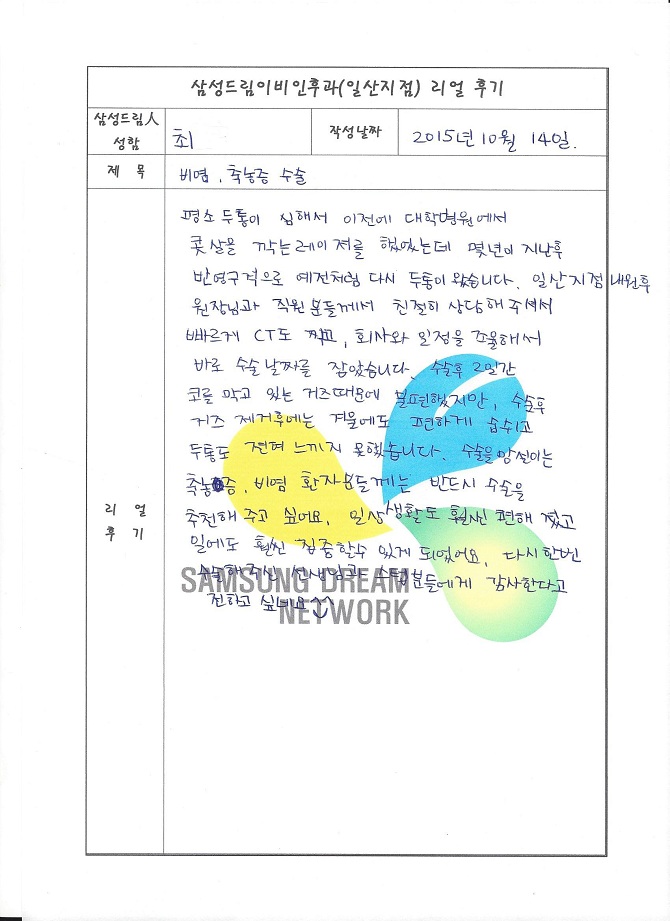 삼성드림이비인후과(일산지점) 리얼 후기
삼성드림人
성함
최
작성날짜
2015년 10월 14일.
제 목
비염, 축농증 수술
리 얼
후 기
평소 두통이 심해서 이전에 대학병원에서
콧살을 깍는레이저를 했었는데 몇년이 지난후
반영구적으로 예전처럼 다시 두통이 왔습니다. 일산지점 내원후
원장님과 직원분들께서 친절히 상담해주셔서
빠르게 CT도 찍고, 회사와 일정을 조율해서
바로 수술날짜를 잡았습니다. 수술후 2일간
코를 막고 있는 거즈때문에 불편했지만, 수술후
거즈 제거후에는 겨울에도 편하게 숨쉬고
두통도 전혀 느끼지 못했습니다. 수술을 망설이는
축농증, 비염 환자분들께는 반드시 수술을
추천해 주고 싶어요. 일상생활도 훨씬 편해 졌고
일에도 훨씬 집중할수 있게 되었어요. 다시한번
수술해주신 선생님과 스텝분들에게 감사한다고
전하고 싶네요
SAMSUNG DREAM
NETWORK